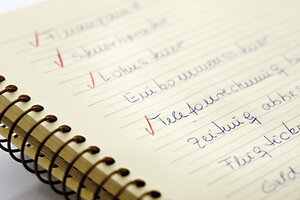 Finanzamt
Steuerberater
Lohnsteuer
Einkommenssteuer
Telefonrechnung
Zeitung abbe
Flugticke
Geld